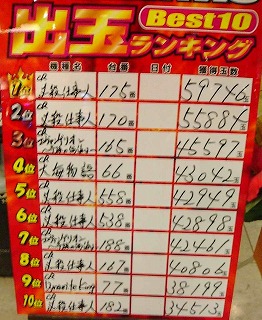 出玉 Best10
ランキング
機種名 台番 日付 獲得玉数
1位 CR 必殺仕事人 175番 59746玉
2位 CR 必殺仕事人 170番 55884玉
3位 165番 45597玉
4位 大海物語 66番 43042玉
5位 CR 必殺仕事人 558番 42949玉
6位 CR 必殺仕事人 538番 42898玉
7位 188番 42461玉
8位 CR 必殺仕事人 167番 40806玉
9位 CR Dynamite King 77番 38199玉
10位 CR 必殺仕事人 182番 34513玉